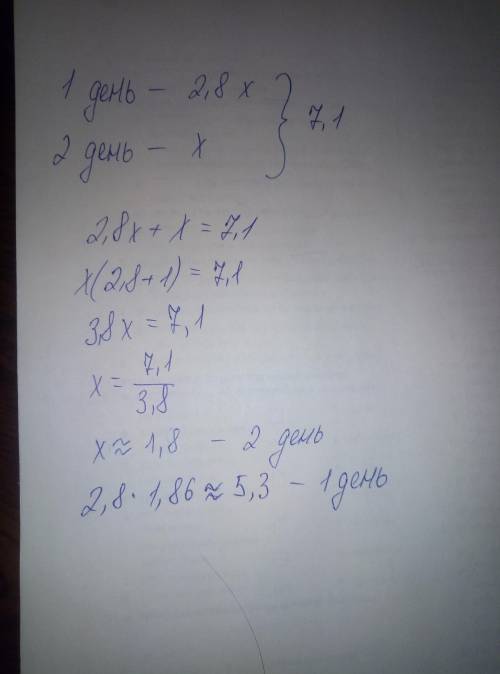 1 день – 2,8 x
2 день – x } 7,1
2,8x + x = 7,1
x(2,8+1) = 7,1
3,8x = 7,1
x = 7,1/3,8
x ≈ 1,8 – 2 день
2,8 · 1,86 ≈ 5,3 – 1 день